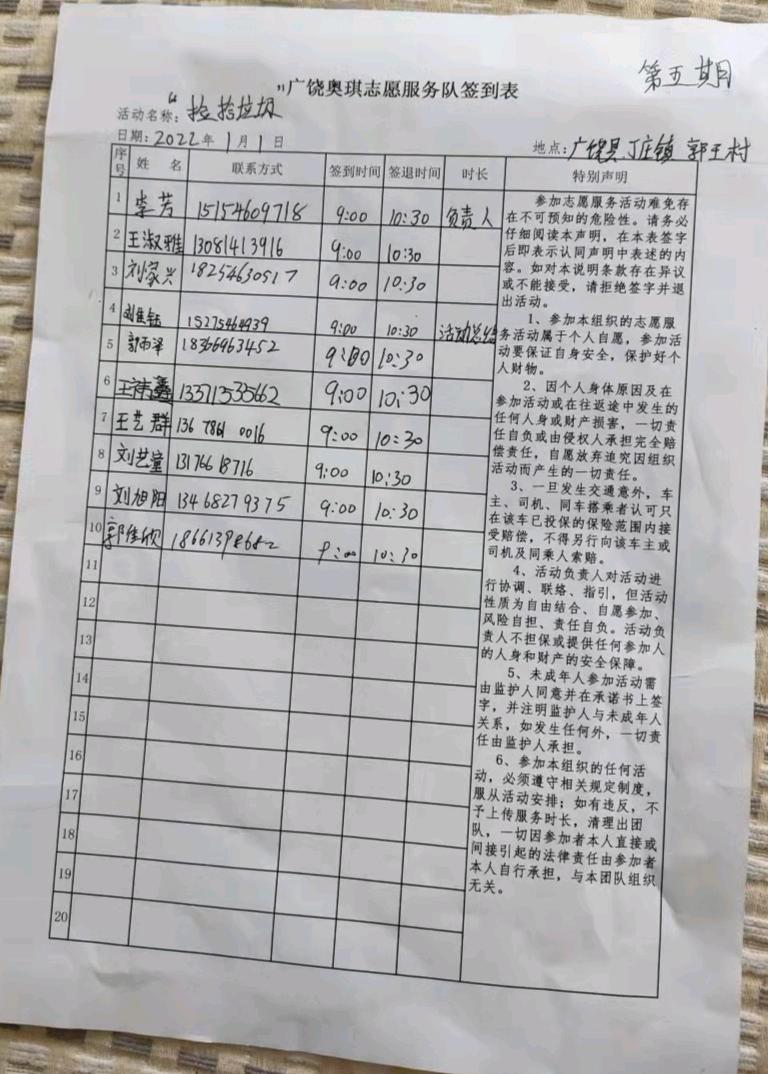 第五期
"广饶奥琪志愿服务队签到表
活动名称："捡拾垃圾
日期：2022年1月1日
地点：广饶县丁庄镇郭王村
序号 姓名 联系方式 签到时间 签退时间 时长 特别声明
1 李芳 15154609718 9:00 10:30 负责人
2 王淑雅 13081413916 9:00 10:30
3 刘家兴 18254630517 9:00 10:30
4 15275464939 9:00 10:30
5 郭雨泽 18366963452 9:00 10:30
6 13371535662 9:00 10:30
7 王艺群 136 7861 0016 9:00 10:30
8 刘艺童 9:00 10:30
9 刘旭阳 13468279375 9:00 10:30
10 郭佳欣 10:30
11
12
13
14
15
16
17
18
19
20
参加志愿服务活动难免存
在不可预知的危险性。请务必
仔细阅读本声明，在本表签字
后即表示认同声明中表述的内
容。如对本说明条款存在异议
或不能接受，请拒绝签字并退
出活动。
1、参加本组织的志愿服
务活动属于个人自愿，参加活
动要保证自身安全，保护好个
人财物。
2、因个人身体原因及在
参加活动或在往返途中发生的
任何人身或财产损害，一切责
任自负或由侵权人承担完全赔
偿责任，自愿放弃追究因组织
活动而产生的一切责任。
3、一旦发生交通意外，车
主、司机、同车搭乘者认可只
在该车已投保的保险范围内接
受赔偿，不得另行向该车主或
司机及同乘人索赔。
4、活动负责人对活动进
行协调、联络、指引，但活动
性质为自由结合、自愿参加、
风险自担、责任自负。活动负
责人不担保或提供任何参加人
的人身和财产的安全保障。
5、未成年人参加活动需
由监护人同意并在承诺书上签
字，并注明监护人与未成年人
关系，如发生任何外，一切责
任由监护人承担。
6、参加本组织的任何活
动，必须遵守相关规定制度，
服从活动安排；如有违反，不
予上传服务时长，清理出团
队，一切因参加者本人直接或
间接引起的法律责任由参加者
本人自行承担，与本团队组织
无关。